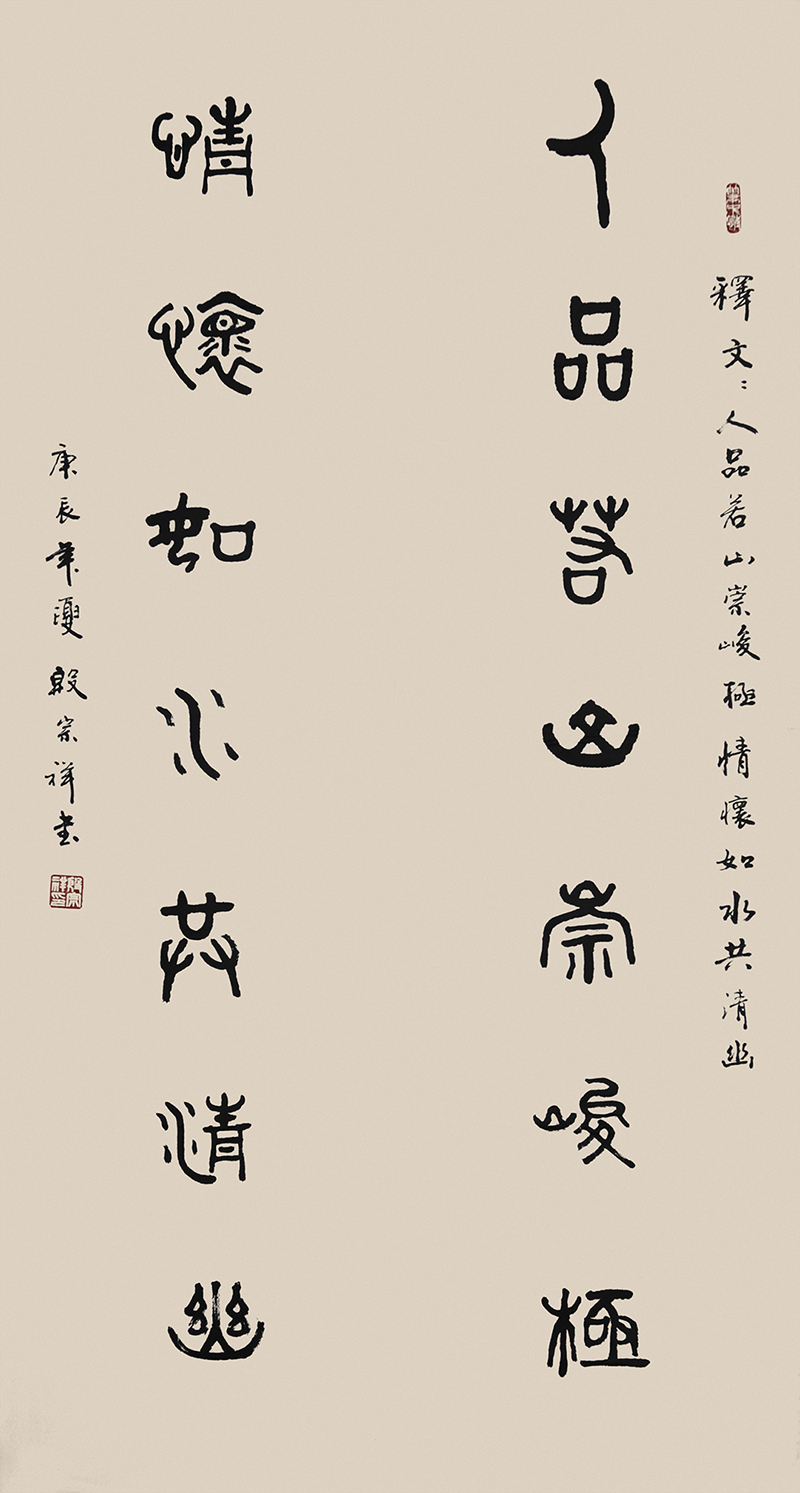 釋文：人品若山崇峻極 情懷如水共清幽
人品若山崇峻極
情懷如水共清幽
庚辰年夏 殷宗祥書
殷宗祥印